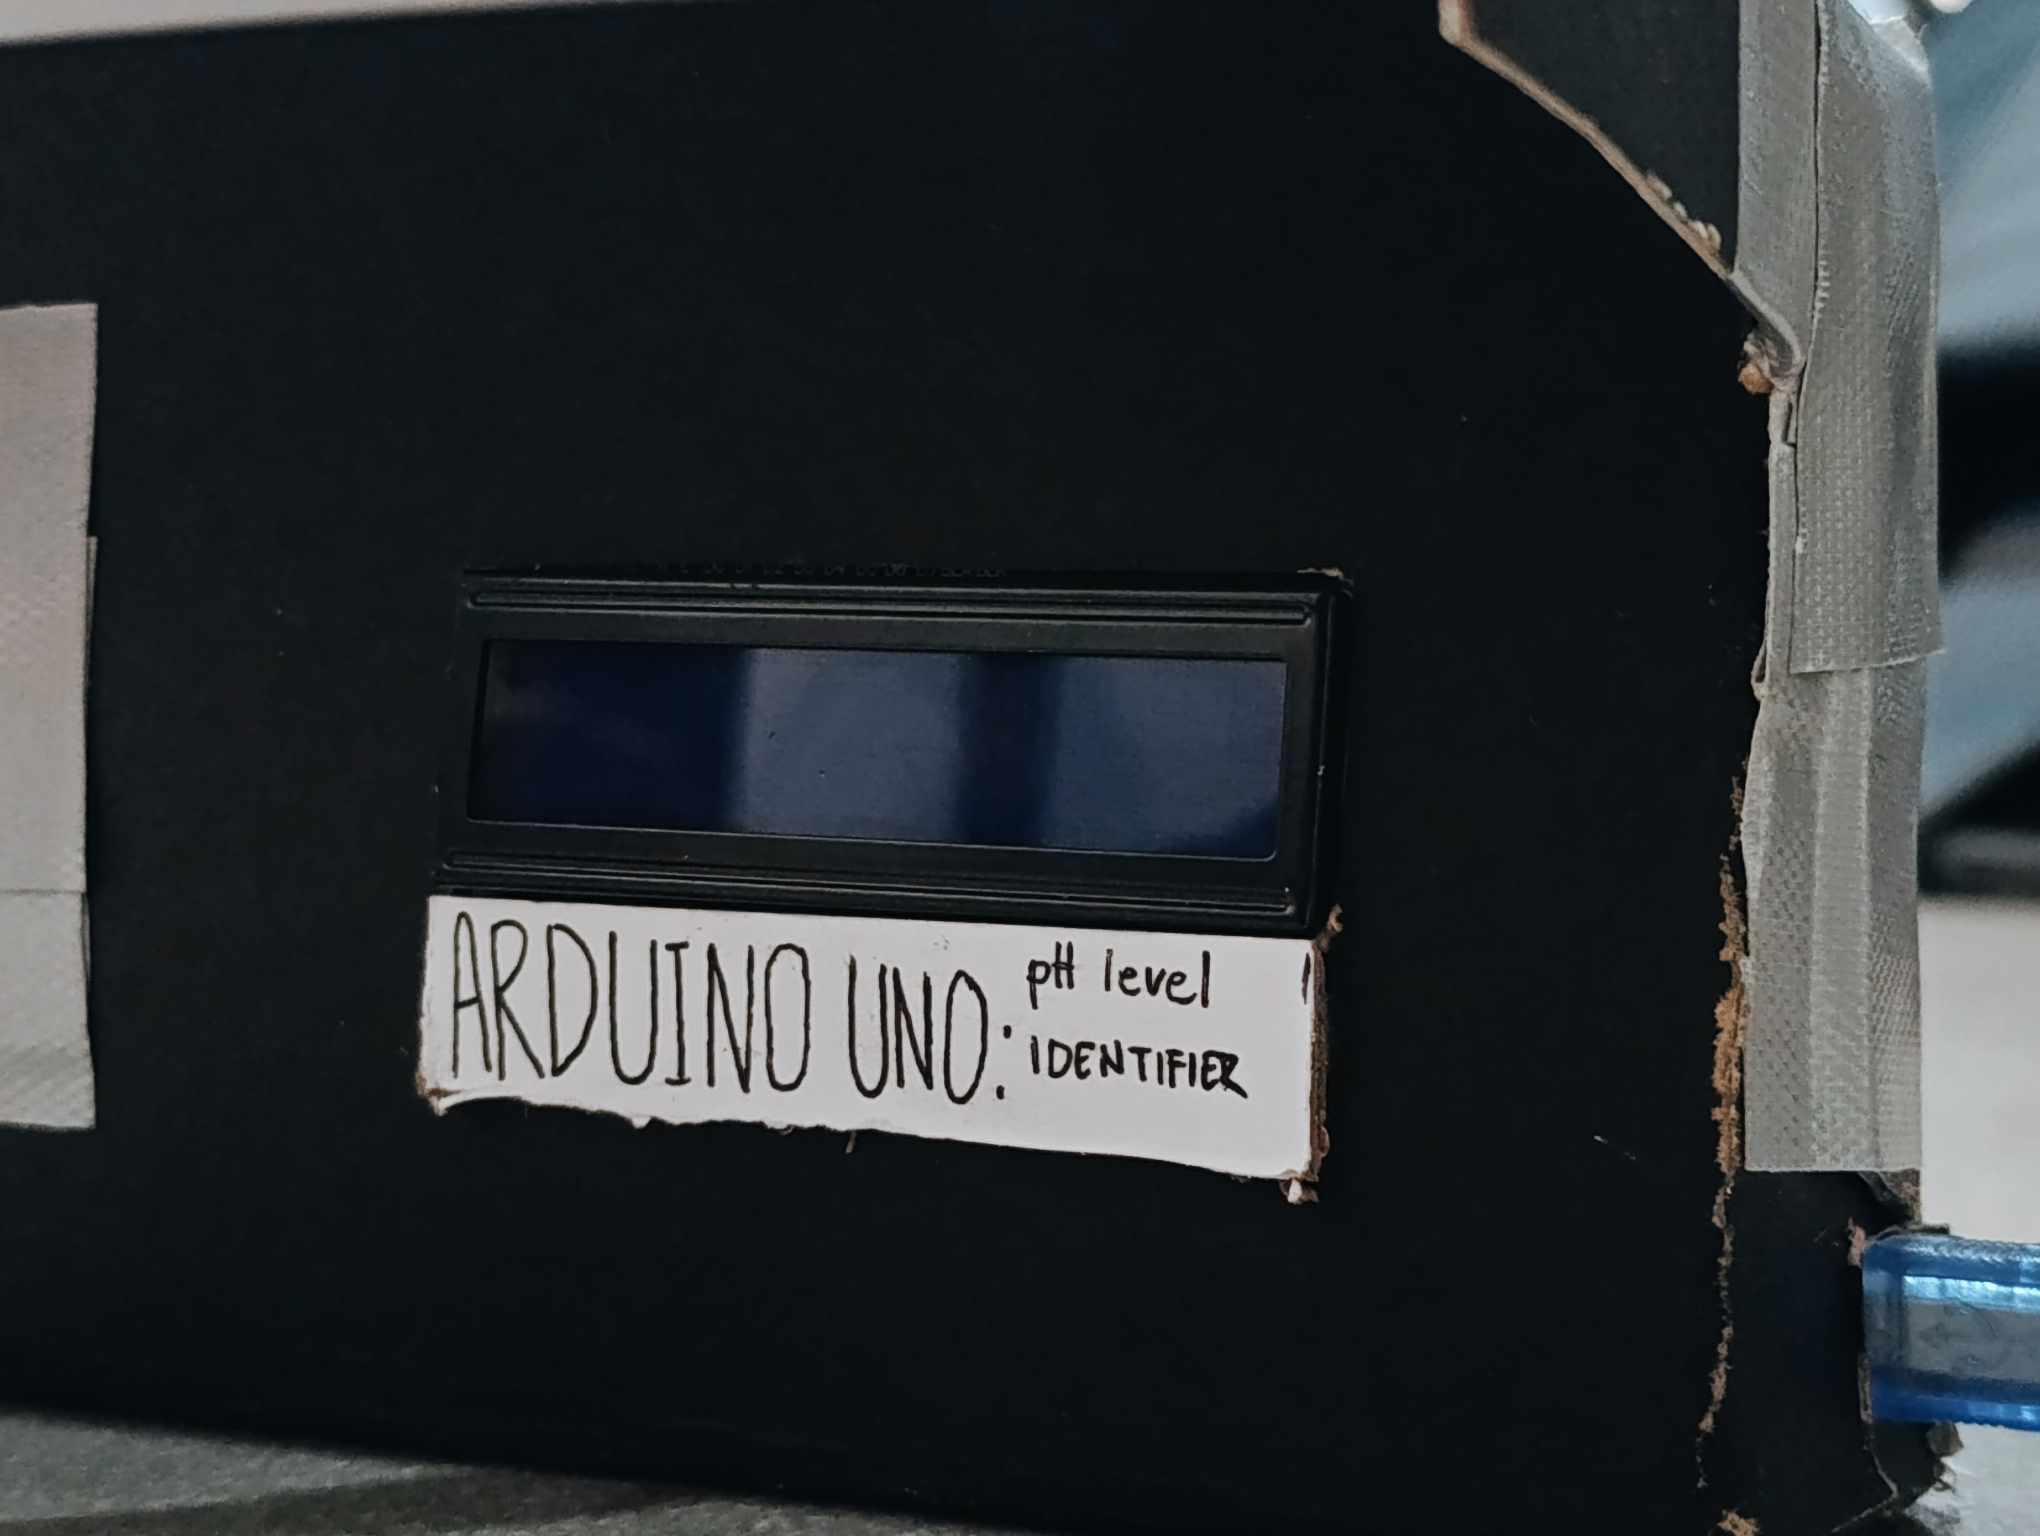 ARDUINO UNO: pH level
IDENTIFIER